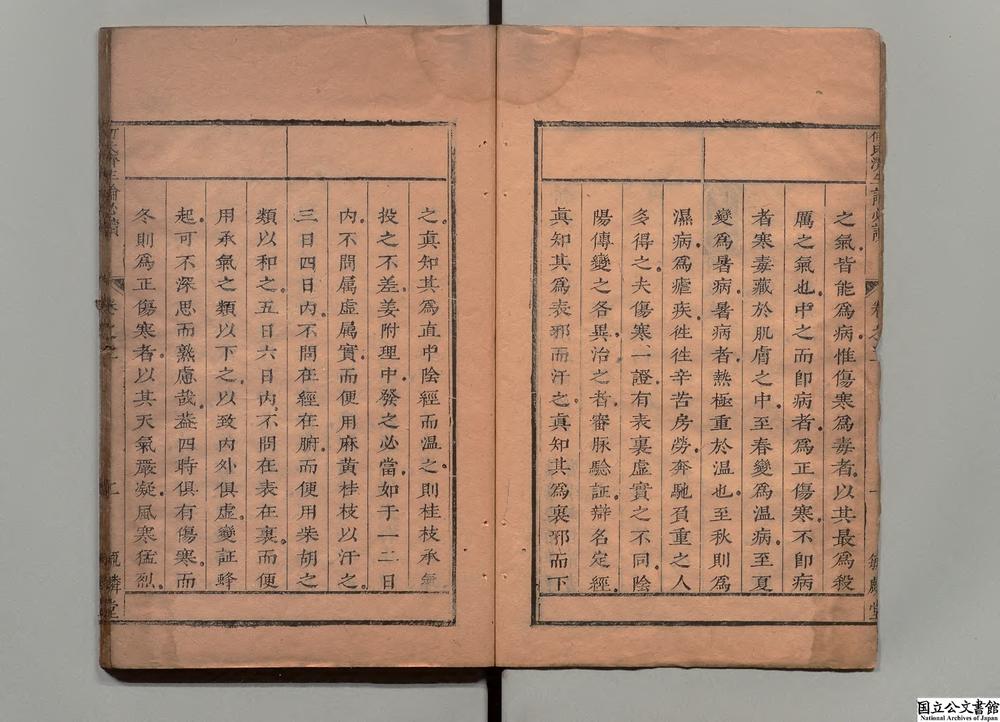 之氣皆能爲病惟傷寒爲毒者以其最爲殺
厲之氣也中之而卽病者爲正傷寒不卽病
者寒毒藏於肌膚之中至春變爲温病至夏
變爲暑病暑病者熱極重於温也至秋則爲
濕病爲瘧疾徃徃辛苦房勞奔馳負重之人
多得之夫傷寒一證有表裏虛實之不同陰
陽傳變之各異治之者審脉驗証辯名定經
眞知其爲表邪而汗之眞知其爲裏邪而下
之眞知其爲直中陰經而温之則桂枝承氣
投之不差姜附理中發之必當如于一二日
内不問屬虛屬實而便用麻黃桂枝以汗之
三日四日内不問在經在腑而便用柴胡之
類以和之五日六日内不問在表在裏而便
用承氣之類以下之以致内外俱虛變証蜂
起可不深思而熟慮哉葢四時俱有傷寒而
冬則爲正傷寒者以其天氣嚴凝風寒猛烈
国立公文書館
National Archives of Japan